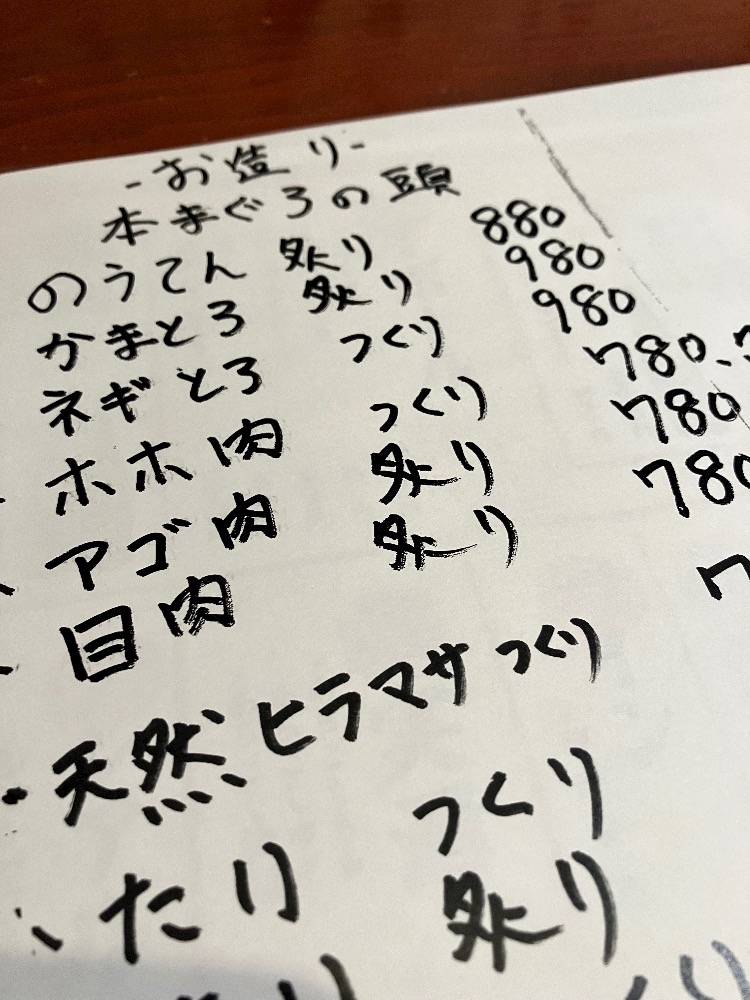 -お造り-
本まぐろの頭
のうてん 炙り 880
かまとろ 炙り 980
ネギとろ つくり 980
ホホ肉 つくり 780.
アゴ肉 炙り 780
目肉 炙り 780
・天然ヒラマサつくり 7
・たり つくり
炙り